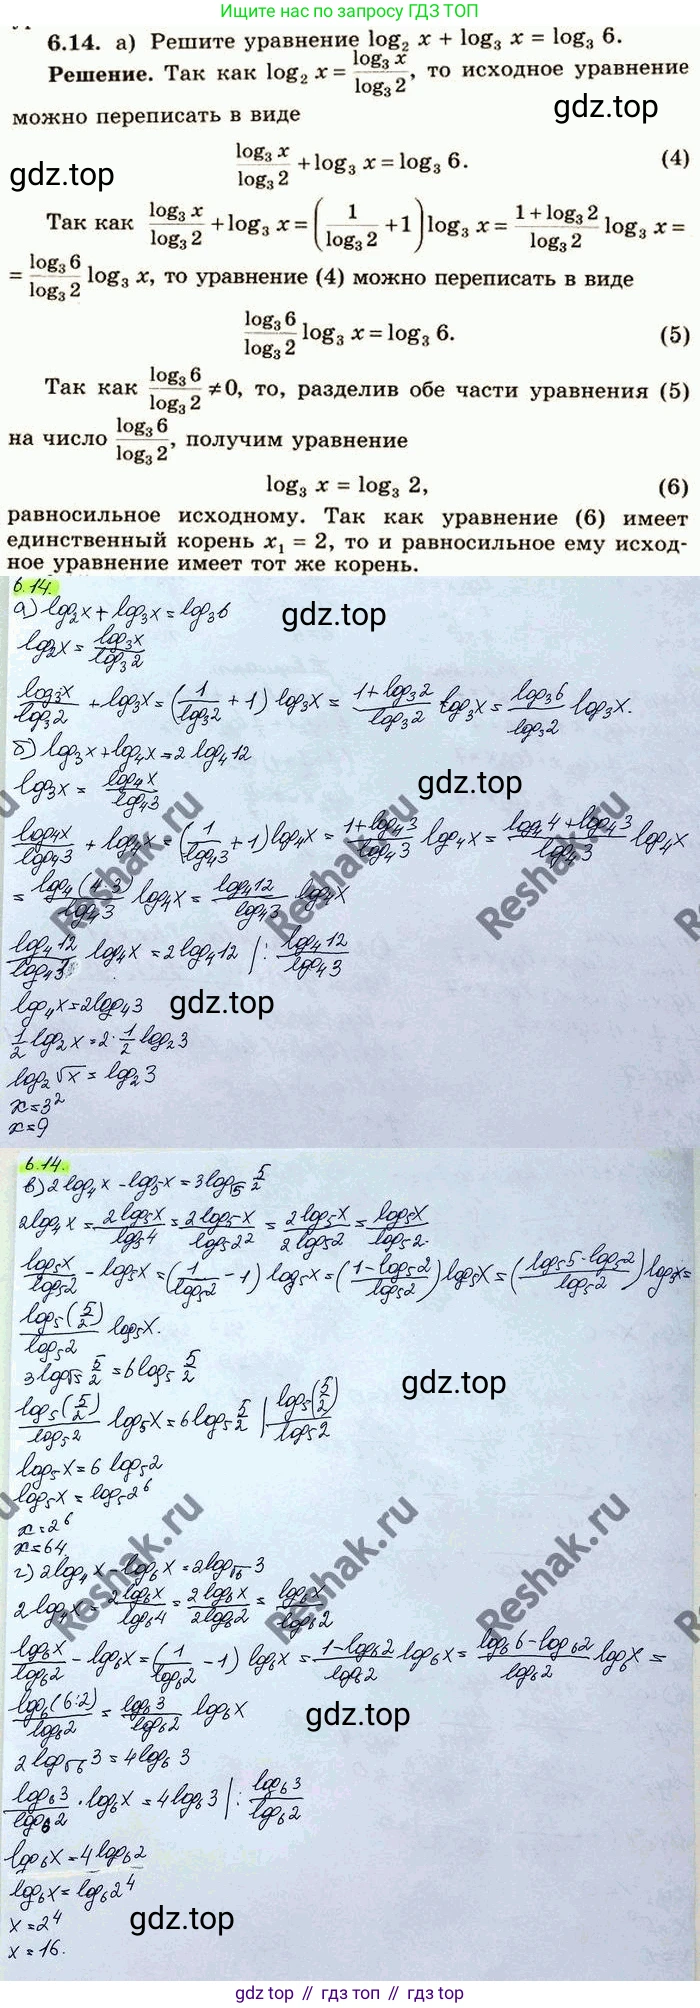 Ищите нас по запросу ГДЗ ТОП
6.14. а) Решите уравнение log₂ x + log₃ x = log₃ 6.
Решение. Так как log₂ x = log₃ x / log₃ 2, то исходное уравнение
можно переписать в виде
gdz.top
gdz.top
log₃ x / log₃ 2 + log₃ x = log₃ 6. (4)
Так как log₃ x / log₃ 2 + log₃ x = (1 / log₃ 2 + 1) log₃ x = (1 + log₃ 2) / log₃ 2 log₃ x =
= log₃ 6 / log₃ 2 log₃ x, то уравнение (4) можно переписать в виде
log₃ 6 / log₃ 2 log₃ x = log₃ 6. (5)
Так как log₃ 6 / log₃ 2 ≠ 0, то, разделив обе части уравнения (5)
на число log₃ 6 / log₃ 2, получим уравнение
log₃ x = log₃ 2, (6)
равносильное исходному. Так как уравнение (6) имеет
единственный корень x₁ = 2, то и равносильное ему исход-
ное уравнение имеет тот же корень.
6.14.
а) log₂x + log₃x = log₃6
gdz.top
log₂x = log₃x / log₃2
log₃x / log₃2 + log₃x = (1 / log₃2 + 1) log₃x = (1 + log₃2) / log₃2 log₃x = log₃6 / log₃2 log₃x.
б) log₃x + log₄x = 2 log₄12
log₃x = log₄x / log₄3
gdz.top
log₄x / log₄3 + log₄x = (1 / log₄3 + 1) log₄x = (1 + log₄3) / log₄3 log₄x = (log₄4 + log₄3) / log₄3 log₄x
= log₄(4·3) / log₄3 log₄x = log₄12 / log₄3 log₄x
Reshak.ru
Reshak.ru
log₄12 / log₄3 log₄x = 2 log₄12 | : log₄12 / log₄3
log₄x = 2log₄3
gdz.top
1/2 log₂x = 2 · 1/2 log₂3
log₂√x = log₂3
x = 3²
x = 9
6.14.
в) 2 log₄x - log₅x = 3 log√5 5/2
2log₄x = 2 log₅x / log₅4 = 2 log₅x / log₅2² = 2 log₅x / 2 log₅2 = log₅x / log₅2.
log₅x / log₅2 - log₅x = (1 / log₅2 - 1) log₅x = ((1 - log₅2) / log₅2) log₅x = ((log₅5 - log₅2) / log₅2) log₅x =
log₅(5/2) / log₅2 log₅x.
3 log√5 5/2 = 6 log₅ 5/2
gdz.top
log₅(5/2) / log₅2 log₅x = 6 log₅ 5/2 | log₅(5/2) / log₅2
log₅x = 6 log₅2
log₅x = log₅2⁶
x = 2⁶
x = 64.
Reshak.ru
Reshak.ru
г) 2log₄x - log₆x = 2log√6 3
2 log₄x = 2 log₆x / log₆4 = 2 log₆x / 2 log₆2 = log₆x / log₆2
log₆x / log₆2 - log₆x = (1 / log₆2 - 1) log₆x = (1 - log₆2) / log₆2 log₆x = (log₆6 - log₆2) / log₆2 log₆x =
log₆(6:2) / log₆2 = log₆3 / log₆2 log₆x
gdz.top
2 log√6 3 = 4 log₆ 3
log₆3 / log₆2 · log₆x = 4 log₆3 | : log₆3 / log₆2
log₆x = 4 log₆2
log₆x = log₆2⁴
gdz.top
x = 2⁴
x = 16.
gdz top // гдз топ // gdz.top